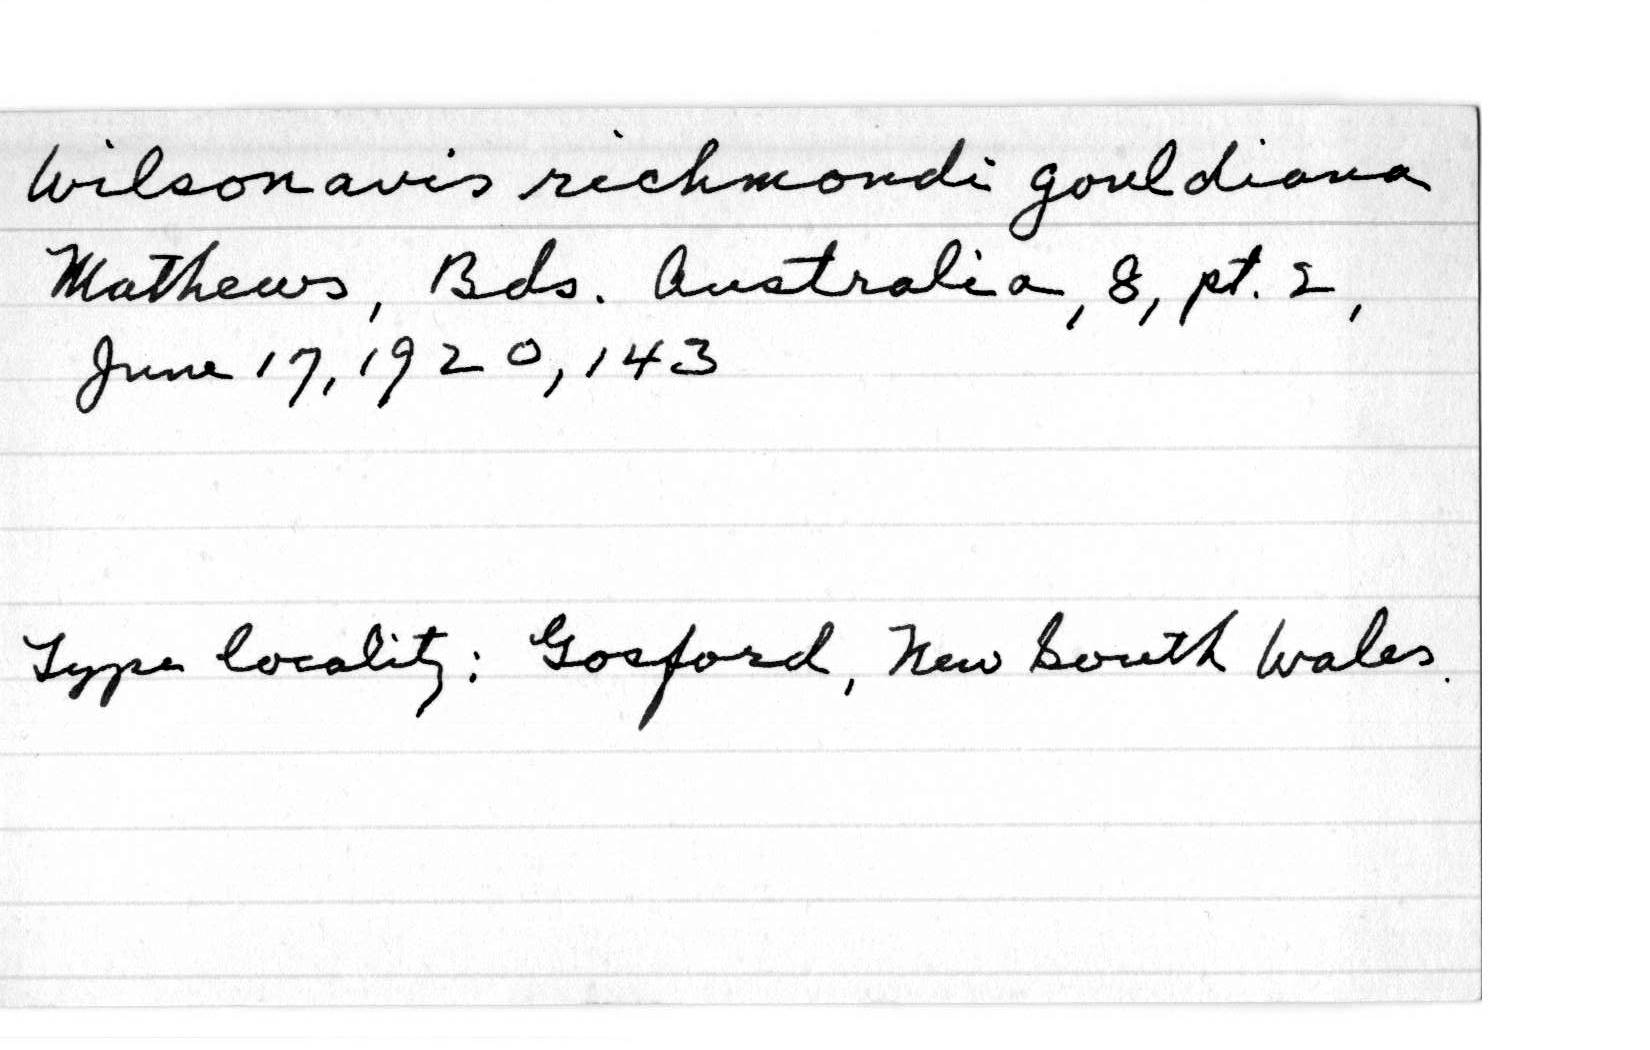 Wilsonavis richmondi gouldiana
Mathews, Bds. Australia, 8, pt. 2,
June 17, 1920, 143
Type locality: Gosford, New South Wales.